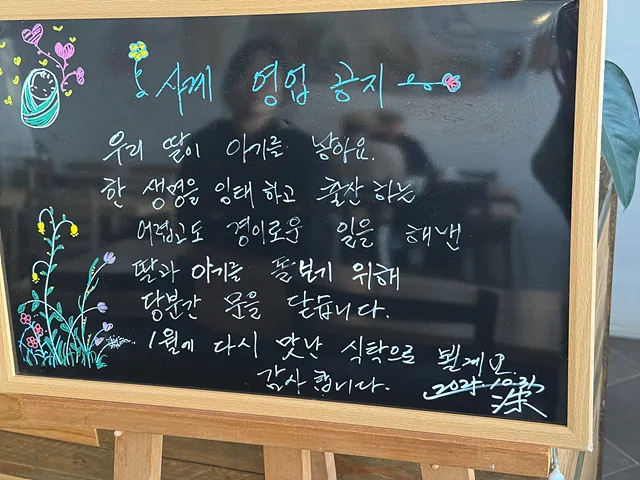 사계 영업 공지
우리 딸이 아기를 낳아요.
한 생명을 잉태하고 출산하는
어렵고도 경이로운 일을 해낸
딸과 아기를 돌보기 위해
당분간 문을 닫습니다.
1월에 다시 맛난 식탁으로 뵐게요.
감사합니다.